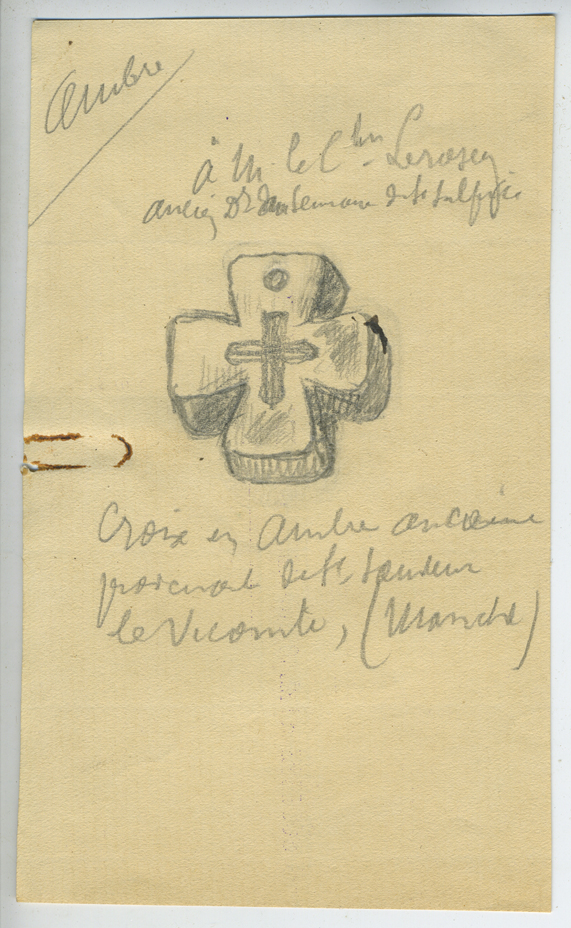 Ambre
à M. le Chn Lerosey
ancien Dr du Séminaire de St Sulpice
Croix en ambre ancienne
provenant de St Sauveur
le Vicomte, (Manche)